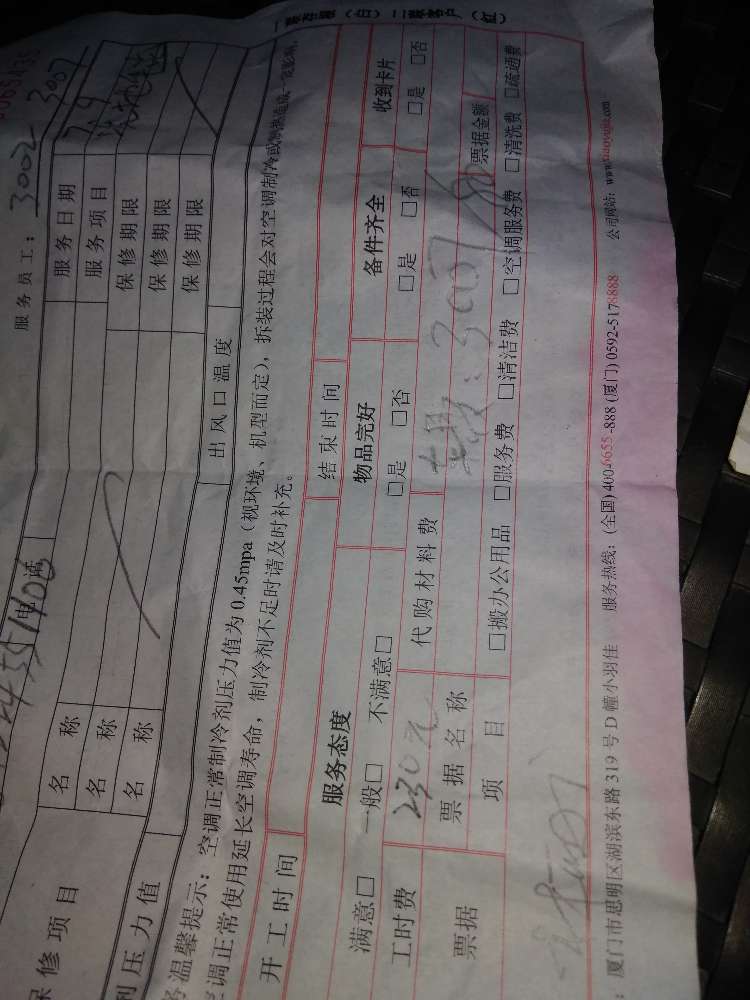 一联存根（白）二联客户（红）
服务员工：3002 3007
服务日期 7.9
服务项目
名称 保修期限
名称 保修期限
名称 保修期限
保修项目
电话
剂压力值 出风口温度
务温馨提示：空调正常制冷剂压力值为0.45mpa（视环境、机型而定），拆装过程会对空调制冷或制热造成一定影响，
空调正常使用延长空调寿命，制冷剂不足时请及时补充。
开工时间 结束时间
服务态度 物品完好 备件齐全 收到卡片
满意□ 一般□ 不满意□ □是 □否 □是 □否 □是 □否
工时费 230元 代购材料费
票据 票据名称 票据金额
项目 □搬办公用品 □服务费 □清洁费 □空调服务费 □清洗费 □疏通费
：厦门市思明区湖滨东路319号D幢小羽佳 服务热线：(全国)400-0655-888 (厦门)0592-5178888 公司网站：www.xiaoyujia.com